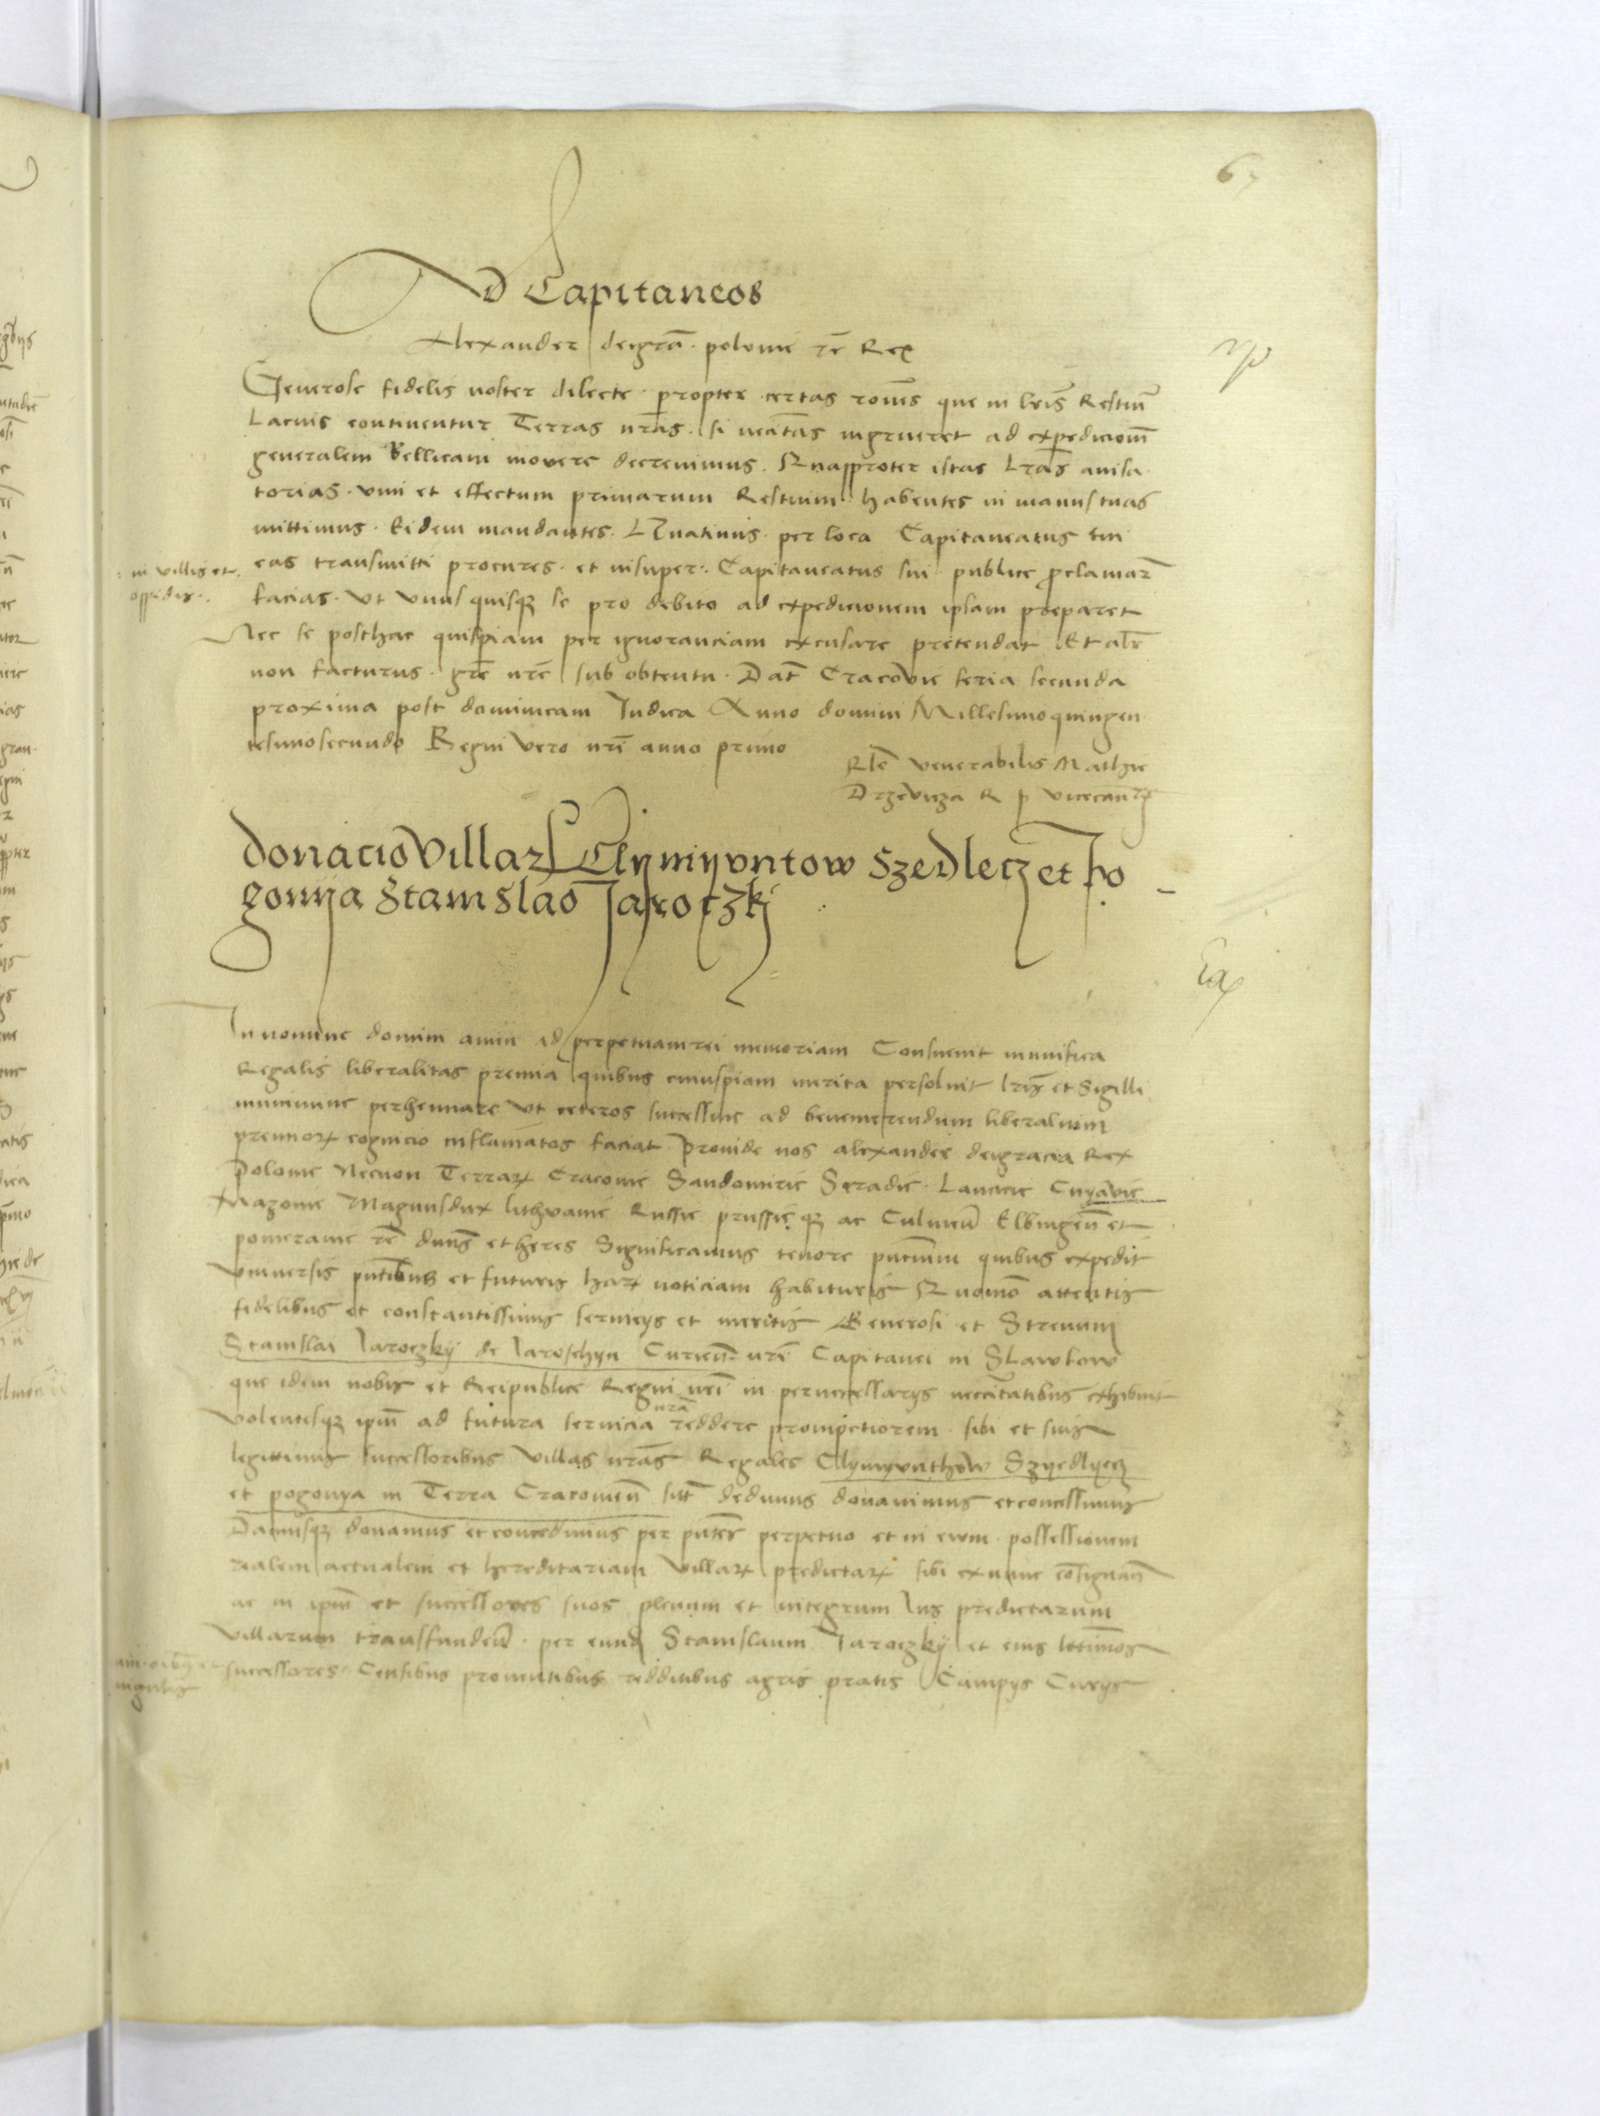 67
Ad Capitaneos
Alexander dei gra͞. polonie rc͞ Rex
Generose fidelis noster dilecte. propter certas ro͞nes que in l͞ris Restiu͞
Lacius continentur Terras nr͞as. si neci͞tas ingrueret ad expedicione͞
generalem Bellicam movere decrevimus. Quapropter istas Lr͞as avisa
torias. vim et effectum primarum Restium habentes in manus tuas
mittimus. Eidem mandantes. Quatinus. per loca Capitaneatus tui
: in villis et
oppidis :
eas transmitti procures. et insuper. Capitaneatus sui publice proclamar͞
facias. Ut unusquisqꝫ se pro debito ad expedicionem ipsam preparet
Nec se posthac quispiam per ignoranciam excusare pretendat Et al͞r
non facturus. gr͞e nr͞e sub obtentu. Dat͞ Cracovie feria secunda
proxima post dominicam Judica Anno domini Millesimo quingen
tesimosecundo Regni vero nr͞i anno primo
Rl͞e venerabilis Mathie
Drzevicza R p vicecan͞
donacio Villaꝝ Clymyuntow Szedlecz et Po
gonya Stanislao Jaroczkj
In nomine domini amen ad perpetuam rei memoriam Consuevit munifica
Regalis liberalitas premia quibus cuiuspiam merita persolvit l͞ris et Sigilli
munimine perhennare Ut ceteros successive ad benemerendum liberalium
premioꝝ cognicio inflammatos faciat Proinde nos alexander dei gracia Rex
Polonie Necnon Terraꝝ Cracovie Sandomirie Siradie. Lancicie Cuyavie
Mazovie Magnusdux lithvanie Russie prussie qꝫ ac Culmen͞ Elbingen͞ et
pomeranie rc͞ dn͞us et heres Significamus tenore pn͞cium quibus expedit
Universis pn͞tibus et futuris haꝝ noticiam habituris Quomo͞ attentis
fidelibus et constantissimis serviciis et meritis Generosi et Strenui
Stanislai Jaroczky de Jaroschyn Curien͞ nr͞i Capitanei in Slawkow
que idem nobis et Reipublice Regni nr͞i in pernecessarys neci͞tatibus exhibuit
volentisqꝫ ipm͞ ad futura servicia nr͞a reddere prompciorem. sibi et suis
legittimis successoribus Villas nr͞as Regales Clymyvnthow Szyedlyecz
et pogonya in Terra Cracovien͞ sit͞ dedimus donavimus et concessimus
Damusqꝫ donamus et concedimus per pn͞tes perpetuo et in evum. possessionem
realem actualem et hereditariam Villaꝝ predictaꝝ sibi exnunc co͞signan͞
ac in ipm͞ et successores suos plenum et integrum Jus predictarum
Villarum transfunden͞. per eund͞ Stanislaum Jaroczky et eius le͞timos
successores. Censibus proventibus redditibus agris pratis Campys Curys